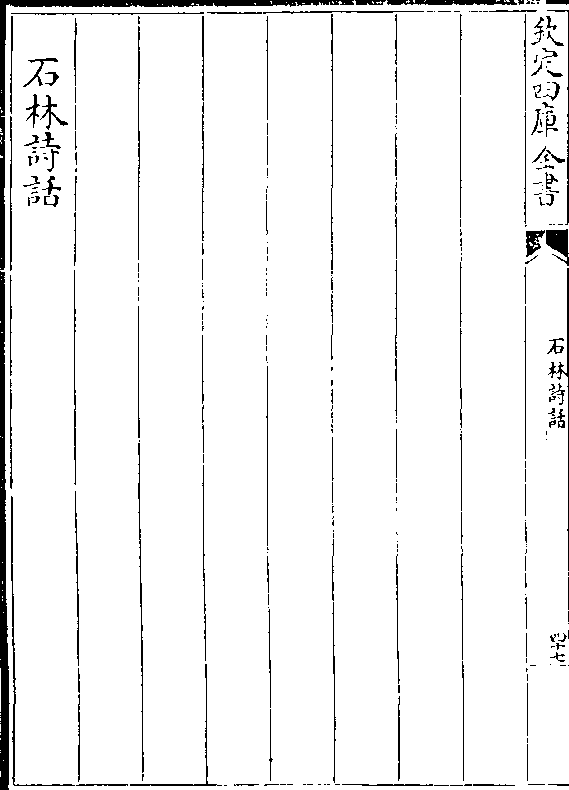 欽定四庫全書
石林詩話
四十七
石林詩話